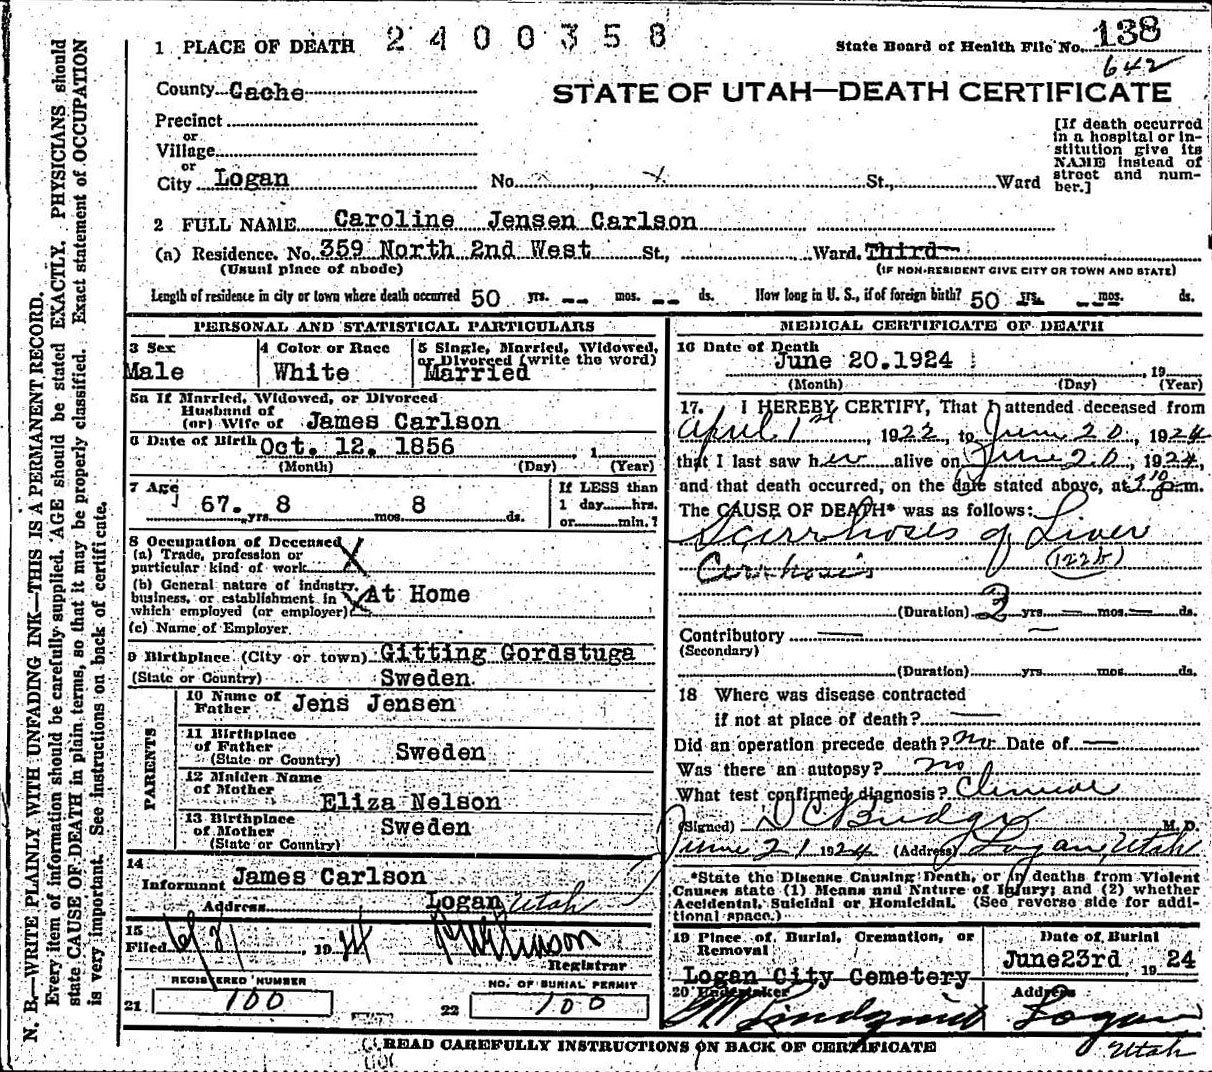 1 PLACE OF DEATH 2400358
State Board of Health File No. 138
642
County Cache
STATE OF UTAH—DEATH CERTIFICATE
Precinct
or
Village
or
City Logan No. St., Ward
[If death occurred
in a hospital or in-
stitution give its
NAME instead of
street and num-
ber.]
2 FULL NAME Caroline Jensen Carlson
(a) Residence. No. 359 North 2nd West St., Ward. Third
(Usual place of abode) (IF NON-RESIDENT GIVE CITY OR TOWN AND STATE)
Length of residence in city or town where death occurred 50 yrs. -- mos. -- ds. How long in U. S., if of foreign birth? 50 yrs. -- mos. ds.
PERSONAL AND STATISTICAL PARTICULARS
3 Sex
Male
4 Color or Race
White
5 Single, Married, Widowed,
or Divorced (write the word)
Married
5a If Married, Widowed, or Divorced
Husband of
(or) Wife of James Carlson
6 Date of Birth Oct. 12. 1856 , 1
(Month) (Day) (Year)
7 Age
67. yrs. 8 mos. 8 ds.
If LESS than
1 day hrs.
or min.?
8 Occupation of Deceased
(a) Trade, profession or
particular kind of work
(b) General nature of industry,
business, or establishment in
which employed (or employer) At Home
(c) Name of Employer
9 Birthplace (City or town) Gitting Gordstuga
(State or Country) Sweden
PARENTS
10 Name of
Father Jens Jensen
11 Birthplace
of Father
(State or Country) Sweden
12 Maiden Name
of Mother
Eliza Nelson
13 Birthplace
of Mother
(State or Country) Sweden
14
Informant James Carlson
Address Logan Utah
15
Filed 6/21, 1924
Registrar
REGISTERED NUMBER
21 100
NO. OF BURIAL PERMIT
22 100
MEDICAL CERTIFICATE OF DEATH
16 Date of Death
June 20.1924 , 19
(Month) (Day) (Year)
17. I HEREBY CERTIFY, That I attended deceased from
April 1st, 1922, to June 20, 1924
that I last saw her alive on June 20, 1924,
and that death occurred, on the date stated above, at m.
The CAUSE OF DEATH* was as follows:
Scerrhoses of Liver
Cerrhosis (122b)
(Duration) 2 yrs. — mos. — ds.
Contributory —
(Secondary)
(Duration) yrs. mos. ds.
18 Where was disease contracted
if not at place of death? —
Did an operation precede death? no Date of —
Was there an autopsy? no
What test confirmed diagnosis? Clinical
(Signed) D C Budge M. D.
June 21 1924 (Address) Logan, Utah
*State the Disease Causing Death, or in deaths from Violent
Causes state (1) Means and Nature of Injury; and (2) whether
Accidental, Suicidal or Homicidal. (See reverse side for addi-
tional space.)
19 Place of Burial, Cremation, or
Removal
Logan City Cemetery
Date of Burial
June 23rd , 19 24
20 Undertaker
Lindquist
Address
Logan
Utah
READ CAREFULLY INSTRUCTIONS ON BACK OF CERTIFICATE
N. B.—WRITE PLAINLY WITH UNFADING INK—THIS IS A PERMANENT RECORD.
Every item of information should be carefully supplied. AGE should be stated EXACTLY. PHYSICIANS should
state CAUSE OF DEATH in plain terms, so that it may be properly classified. Exact statement of OCCUPATION
is very important. See instructions on back of certificate.